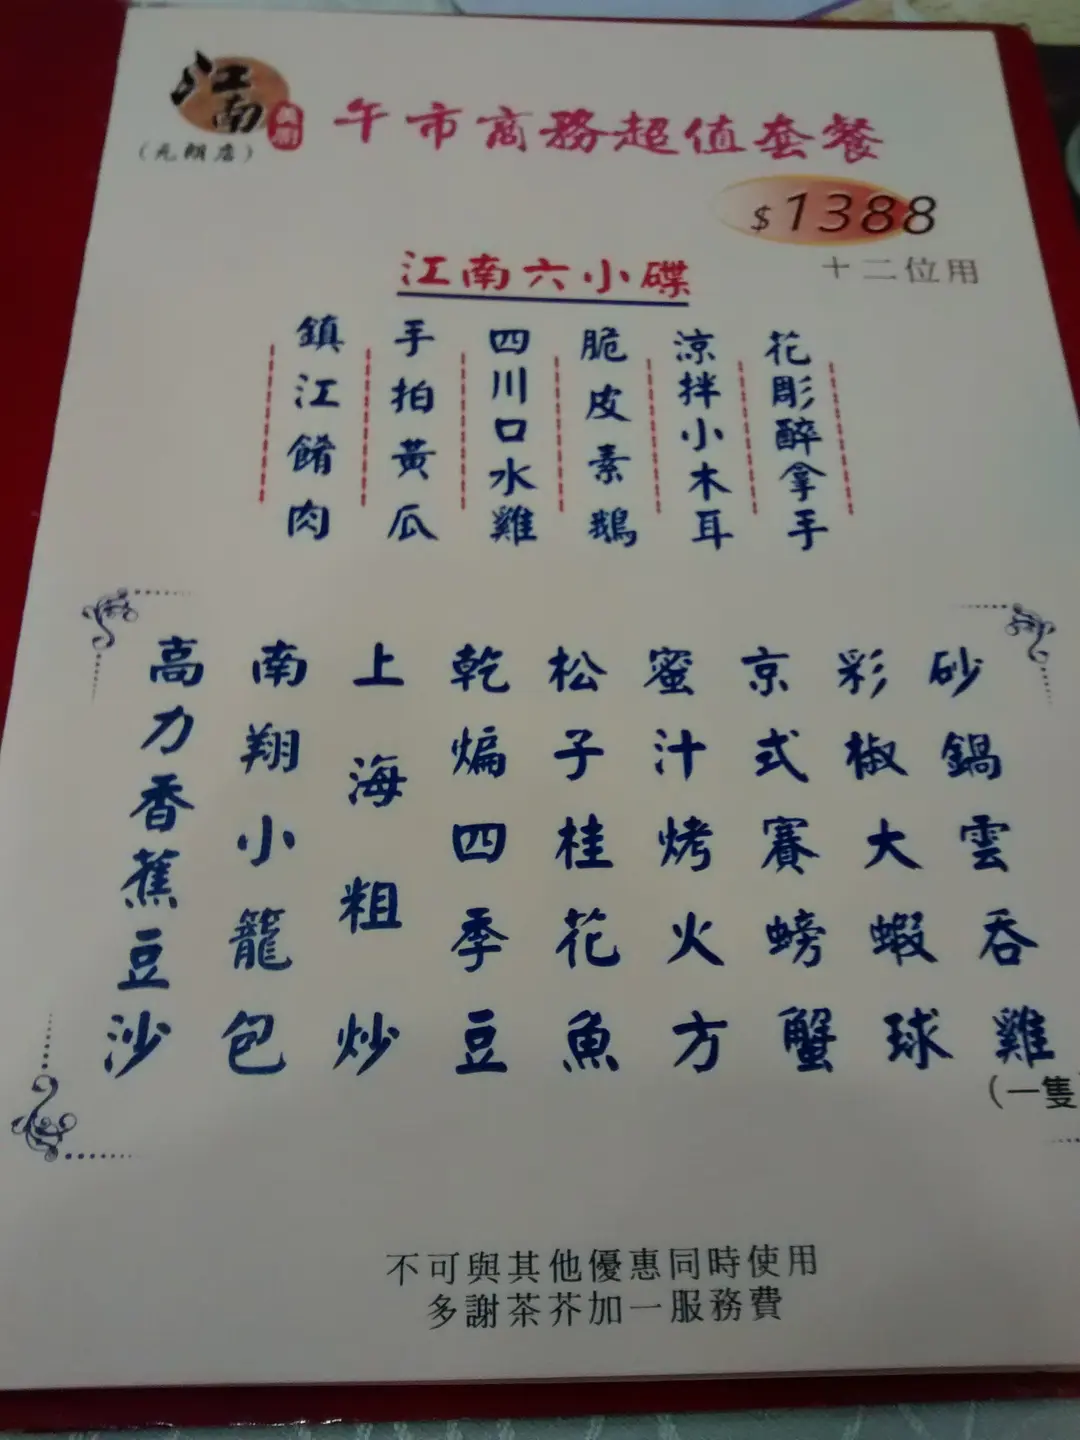 江南
美廚
(元朗店)
午市商務超值套餐
$1388
十二位用
江南六小碟
花彫醉拿手
涼拌小木耳
脆皮素鵝
四川口水雞
手拍黃瓜
鎮江餚肉
砂鍋雲吞雞
(一隻
彩椒大蝦球
京式賽螃蟹
蜜汁烤火方
松子桂花魚
乾煸四季豆
上海粗炒
南翔小籠包
高力香蕉豆沙
不可與其他優惠同時使用
多謝茶芥加一服務費